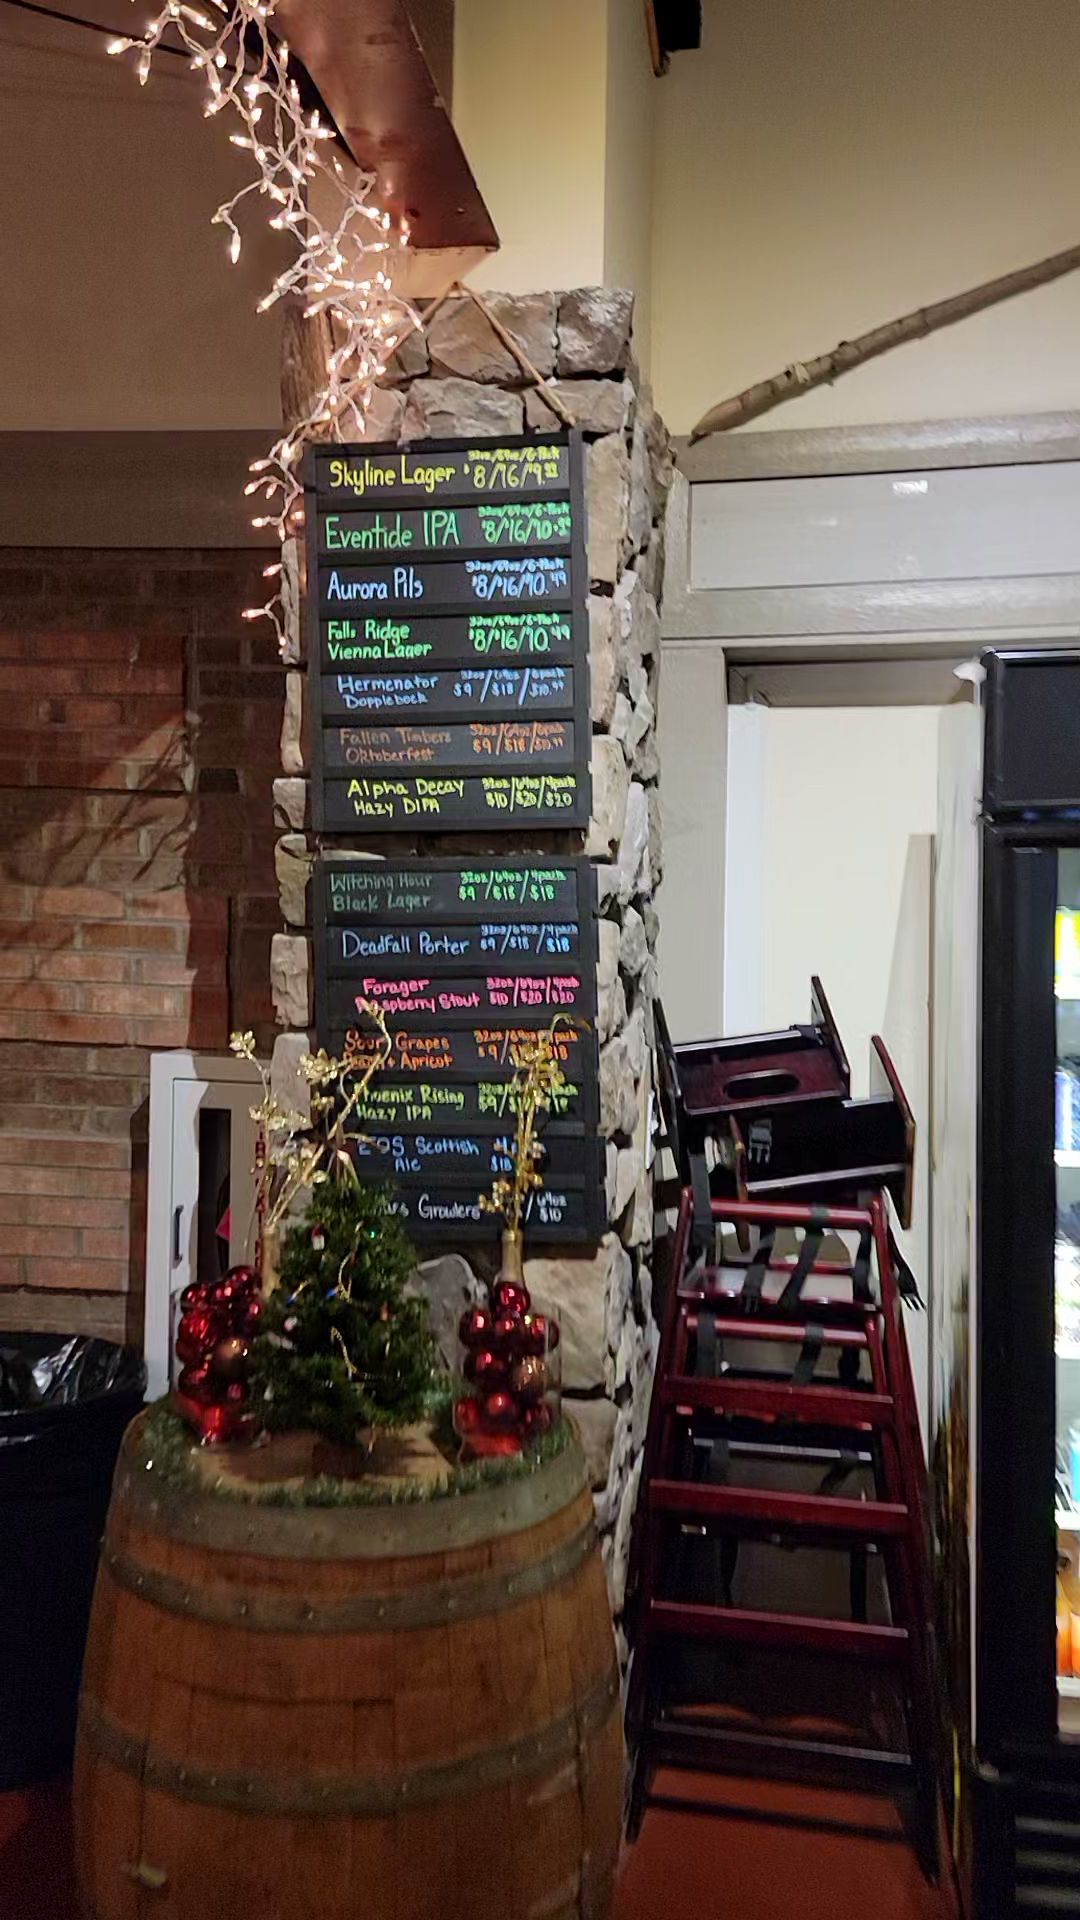 32oz/64oz/6-Pack
Skyline Lager $8/$16/$9.99
32oz/64oz/6-Pack
Eventide IPA $8/$16/$10.99
32oz/64oz/6-Pack
Aurora Pils $8/$16/$10.49
32oz/64oz/6-Pack
Falls Ridge
Vienna Lager $8/$16/$10.49
Hermenator 32oz/64oz/6pack
Dopplebock $9/$18/$10.99
Fallen Timbers 32oz/64oz/6pack
Oktoberfest $9/$18/$10.99
Alpha Decay 32oz/64oz/4pack
Hazy DIPA $10/$20/$20
Witching Hour 32oz/64oz/4pack
Black Lager $9/$18/$18
32oz/64oz/4pack
Deadfall Porter $9/$18/$18
Forager 32oz/64oz/4pack
Raspberry Stout $10/$20/$20
Sour Grapes 32oz/64oz/4pack
+ Apricot $9/ 18
Phoenix Rising
Hazy IPA $9/
Scottish
Ale $18
Growlers /64oz
$10